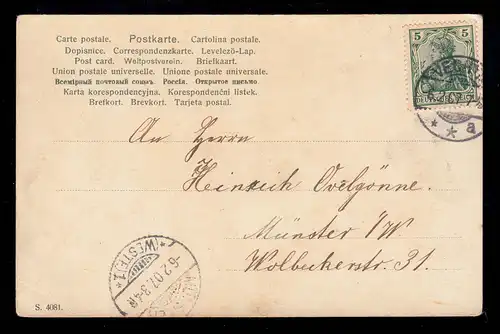 Carte postale. Postkarte. Cartolina postale.
Dopisnice. Correspondenzkarte. Levelező-Lap.
Post card. Weltpostverein. Briefkaart.
Union postale universelle. Unione postale universale.
Всемірный почтовый союзъ. Россія. Открытое письмо.
Karta korespondencyjna. Korespondenční listek.
Brefkort. Brevkort. Tarjeta postal.
5 5
DEUTSCHES REICH
* * a
An Herrn
Heinrich Ovelgönne.
Münster i/W.
Wolbeckerstr. 31.
(WESTF.) 1.
-6.2.07. 3-4N
S. 4081.